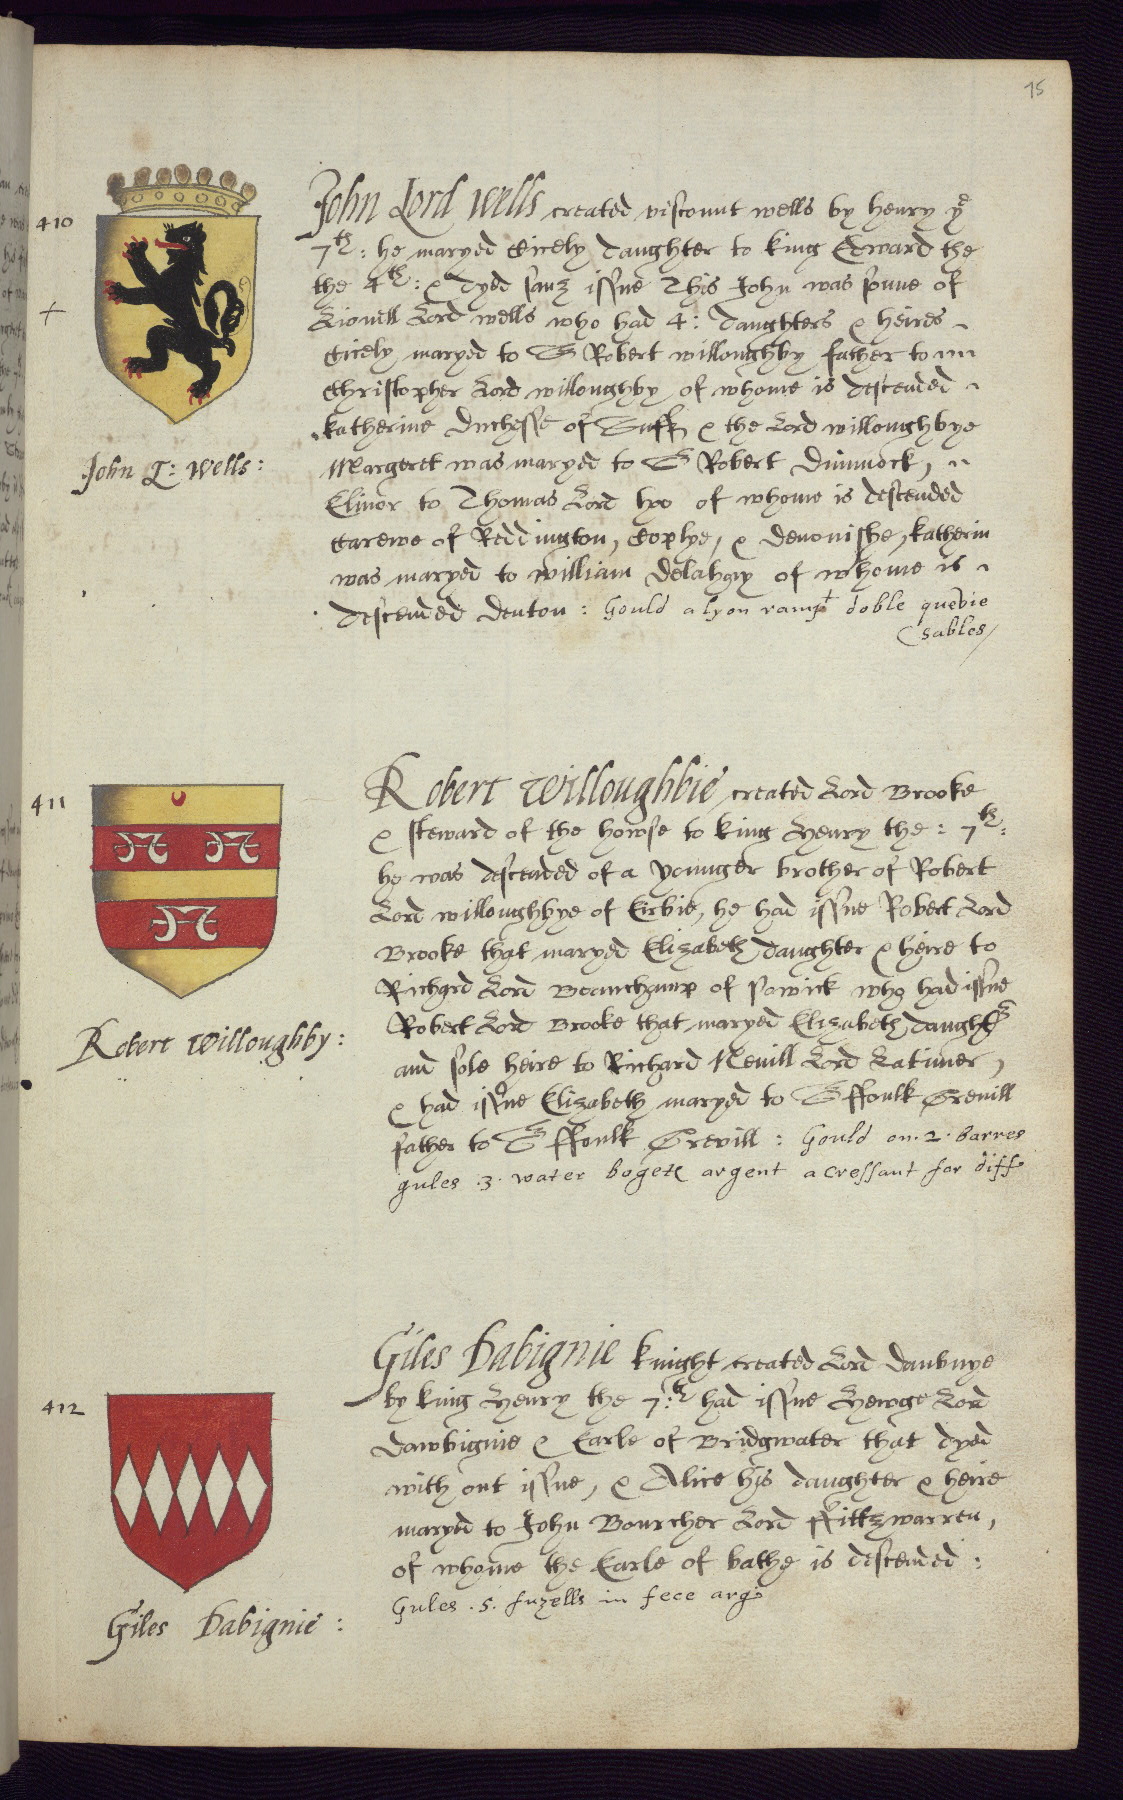 75
410
John Lord Wells created viscount wells by henry ye
7th: he maryed Cicely daughter to king Edward the
the 4th: & dyed sanz issue This John was sonne of
Lionell Lord wells who had 4: daughters & heires
Cicely maryed to Sr Robert willoughby father to
Christopher Lord willoughby of whome is descended
katherine Duchesse of Suff & the Lord willoughbye
Margeret was maryed to Sr Robert Dimmock,
Elinor to Thomas Lord hoo of whome is descended
Carewe of Beddington, Coplye, & devonishe, katherin
was maryed to william Delahay of whome is
descended denton: Gould a lyon rampt doble quevie
sables
John L: Wells:
411
Robert Willoughbie created Lord Brooke
& steward of the howse to king Henry the: 7th:
he was descended of a younger brother of Robert
Lord willoughbye of Erbie, he had issue Robert Lord
Brooke that maryed Elizabeth daughter & heire to
Richard Lord Beauchamp of powick who had issue
Robert Lord Brooke that maryed Elizabeth daughtr
and sole heire to Richard Nevill Lord Latimer,
& had issue Elizabeth maryed to Sr ffoulk Grevill
father to Sr ffoulk Grevill: Gould on .2. barres
gules .3. water bogets argent a cressant for diff
Robert Willoughby:
412
Giles Dabignie knight created Lord daubnye
by king Henry the 7:th had issue Henrye Lord
dawbignie & Earle of Bridgwater that dyed
with out issue, & Alice his daughter & heire
maryed to John Bourcher Lord ffittzwarren,
of whome the Earle of bathe is descended:
Gules .5. fuzells in fece arg:
Giles Dabignie: